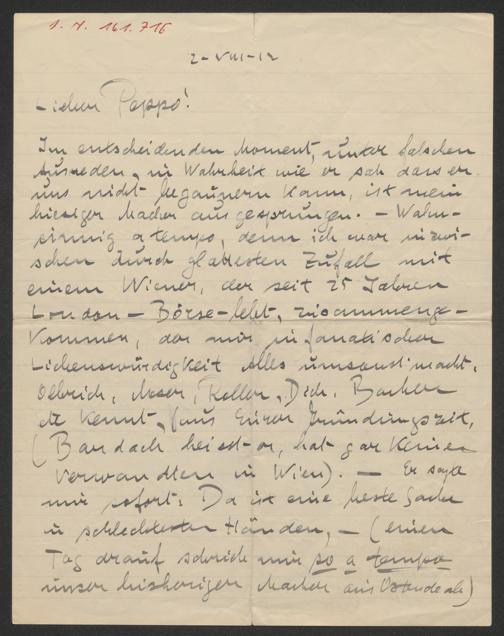 I. N. 161.716
2-VIII-12
Lieber Peppo!
Im entscheidenden Moment, unter falschen
Ausreden, in Wahrheit wie er sah dass er
uns nicht begaunern kann, ist mein
hiesiger Macher ausgesprungen. – Wahn-
sinnig a tempo, denn ich war inzwi-
schen durch glattesten Zufall mit
einem Wiener, der seit 25 Jahren
London – Börse – lebt, zusammenge-
kommen, der mir in fanatischer
Liebenswürdigkeit Alles umsonst macht,
Olbrich, Moser, Roller, Dich,
etc kennt, (aus Eurer Gründungszeit,
(Bardach heisst er, hat gar keine
Verwandten in Wien). – Er sagte
mir sofort: Da ist eine beste Sache
in schlechtesten Händen, – (einen
Tag drauf schrieb mir so a tempo
unser bisheriger Macher aus Ostende ab)